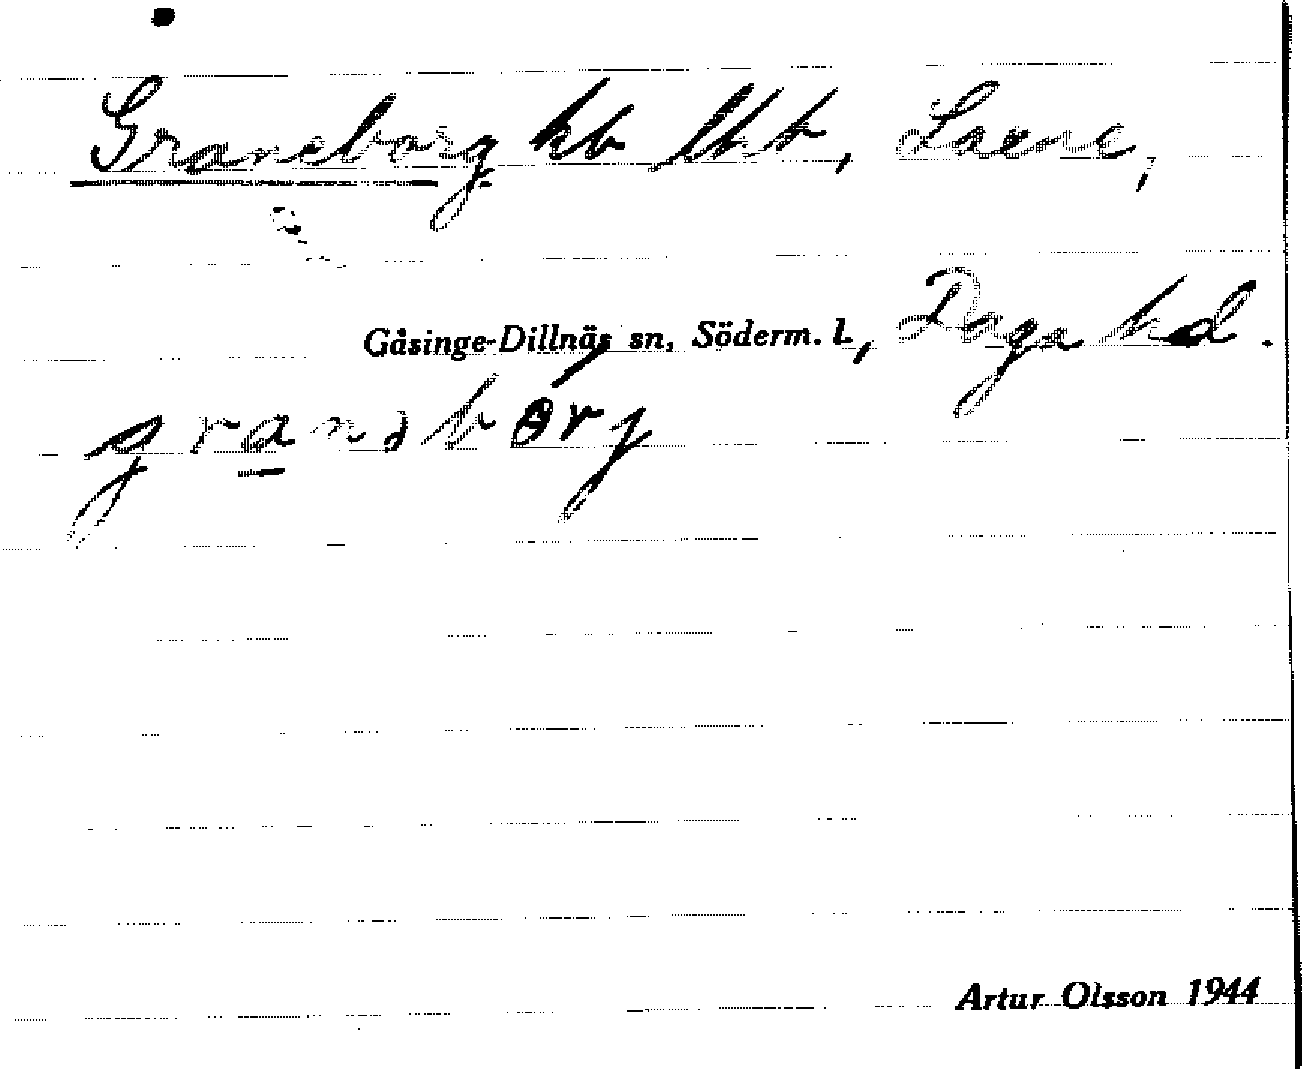 Graneborg hb lht, Laene,
Gåsinge-Dillnäs sn, Söderm. l., Daga hd.
granəbǿrg
Artur Olsson 1944